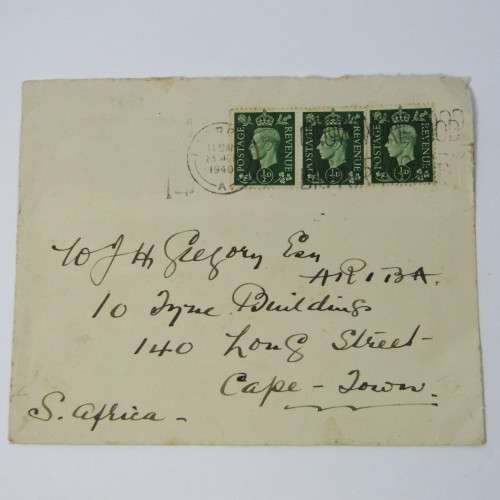 POSTAGE REVENUE ½D POSTAGE REVENUE ½D POSTAGE REVENUE ½D
1940
A
W J H Gregory Esq
A.R.I.B.A.
10 Tyne Buildings
140 Long Street
Cape-Town.
S. Africa-